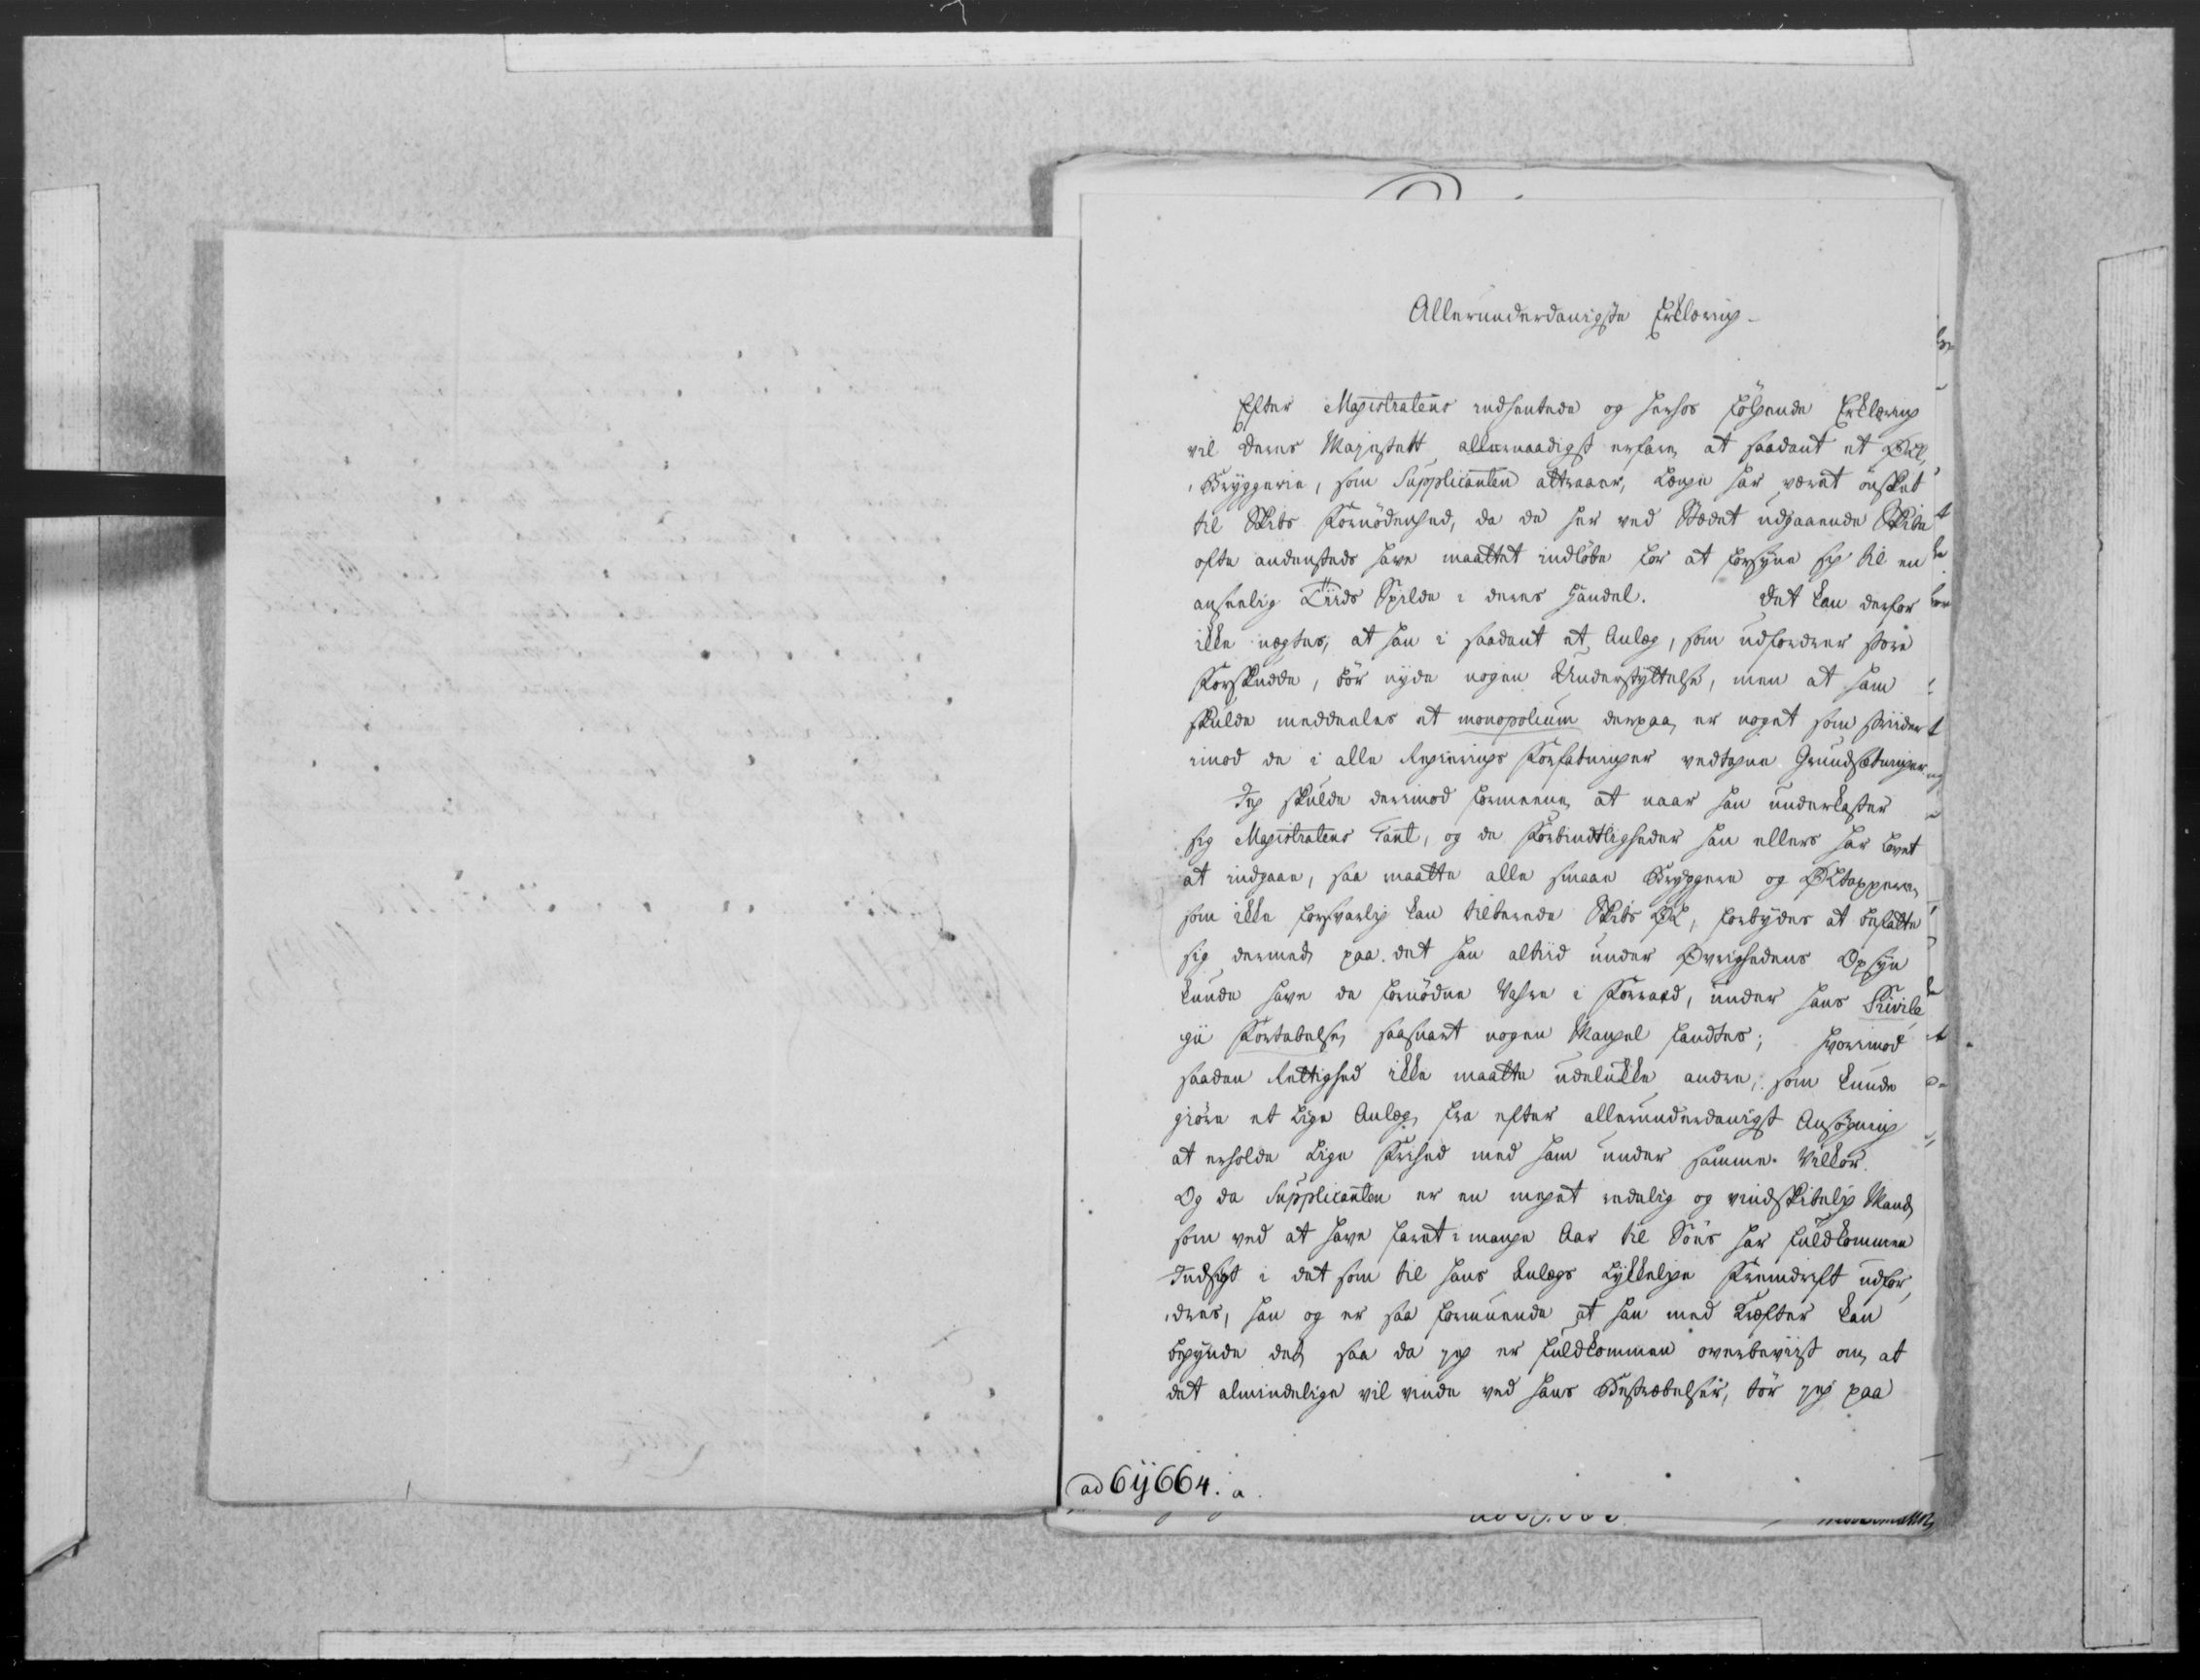 Allerunderdanigste Erklæring -
Efter Magistratens indhentede og herhos følgende Erklæring
vil Deres Majestæt allernaadigst erfare, at saadant et Øll,
Bryggerie, som Supplicanten attraaer, længe har været ønsket
til Skibs Fornødenhed, da de her ved Stædet udgaaende Skibe
ofte andensteds have maattet indløbe for at forsyne sig til en
anseelig Tiids Spilde i deres Handel. Det kan derfor
ikke nægtes, at han i saadant et Anlæg, som udfordrer store
Forskudde, bør nyde nogen Understyttelse, men at ham
skulde meddeeles et monopolium derpaa, er noget som striider
imod de i alle Regierings Forfatninger vedtagne Grundsætninger
Jeg skulde derimod formeene, at naar han underkaster
sig Magistratens Taxt, og de Forbindtligheder han ellers har lovet
at indgaae, saa maatte alle smaae Bryggere og Øltappere,
som ikke forsvarlig kan tilberede Skibs Øl, forbydes at befatte
sig dermed, paa det han altiid under Øvrighedens Opsyn
kunde have de fornødne Vahre i Forraad, under hans Privile
gii Fortabelse, saasnart nogen Mangel fandtes; hvorimod
saadan Rettighed ikke maatte udelukke andre, som kunde
giøre et lige Anlæg, fra efter allerunderdanigst Ansøgning
at erholde lige Frihed med ham under samme Villkor.
Og da Supplicanten er en meget redelig og vindskibelig Mand,
som ved at have faret i mange Aar til Søes har fuldkommen
Indsigt i det som til hans Anlægs lykkelige Fremdrift udfor,
dres, han og er saa formuende at han med Kræfter kan
begynde det, saa da jeg er fuldkommen overbeviist om, at
det almindelige vil vinde ved hans Bestræbelser, tør jeg paa
ad 6ÿ664. a.